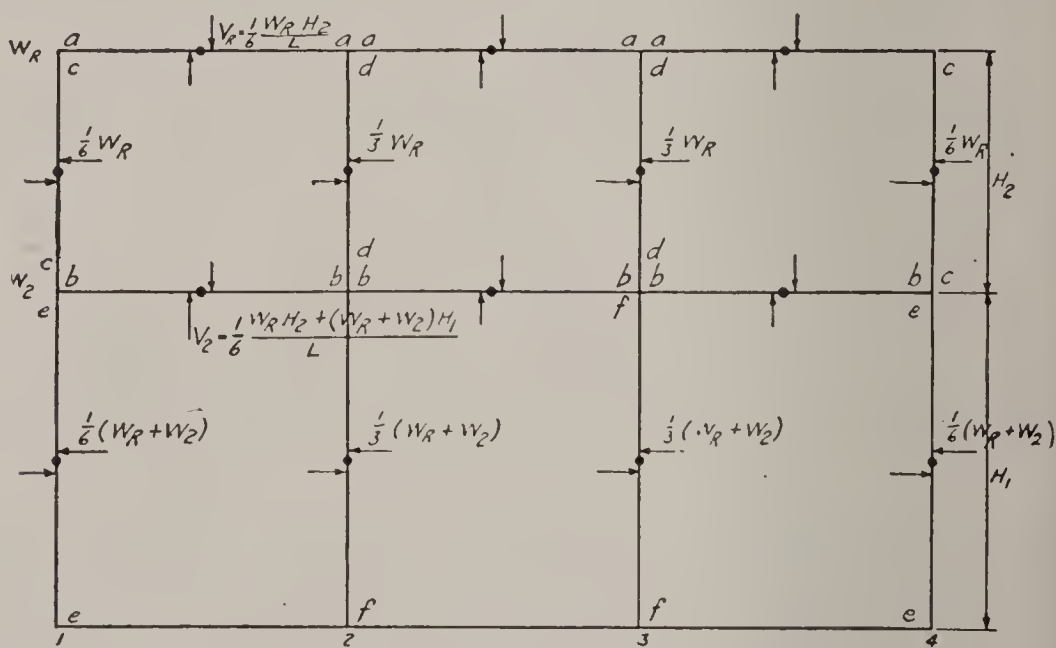 V_R = 1/6 W_R H_2 / L
W_R a a a a a
c d d c
1/6 W_R 1/3 W_R 1/3 W_R 1/6 W_R
H_2
c d d
W_2 b b b b b b c
e f e
V_2 = 1/6 W_R H_2 + (W_R + W_2) H_1 / L
1/6 (W_R + W_2) 1/3 (W_R + W_2) 1/3 (W_R + W_2) 1/6 (W_R + W_2)
H_1
e f f e
1 2 3 4